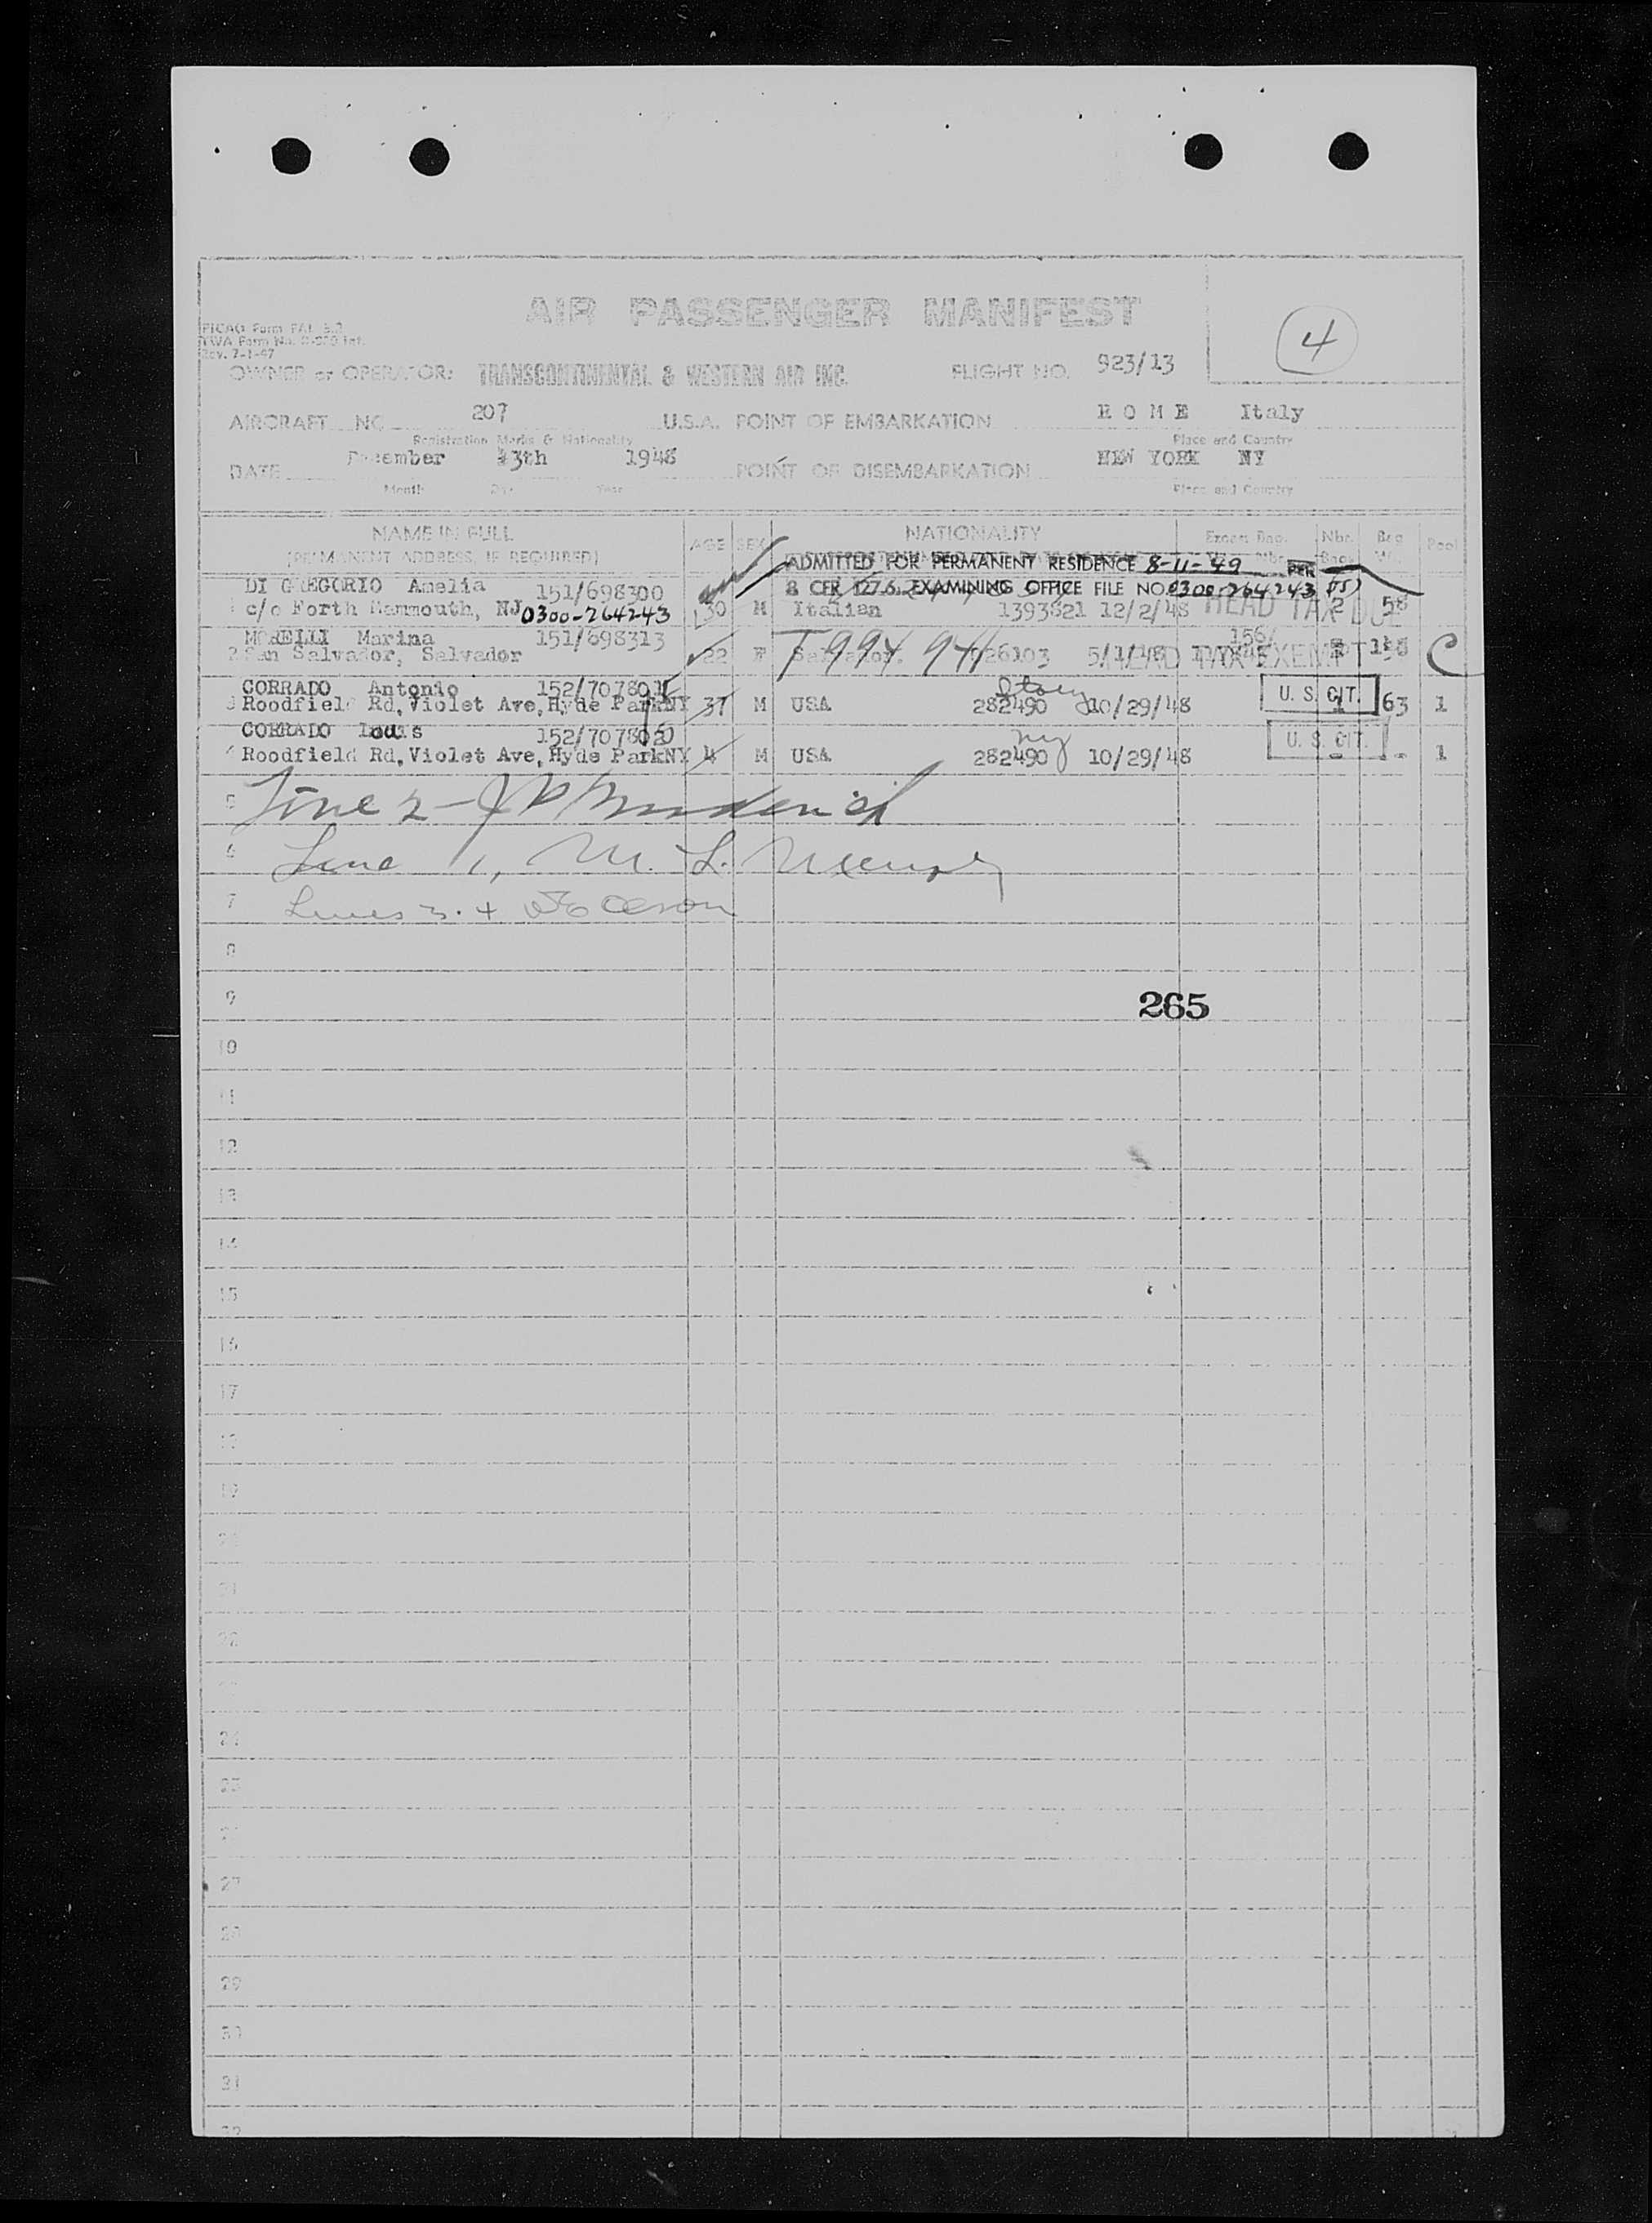 AIR PASSENGER MANIFEST
4
PICAO Form FAL
TWA Form No.
Rev. 7-1-47
OWNER or OPERATOR: TRANSCONTINENTAL & WESTERN AIR INC. FLIGHT NO. 923/13
AIRCRAFT NO 207 U.S.A. POINT OF EMBARKATION R O M E Italy
Registration Marks & Nationality Place and Country
DATE December 13th 1948 POINT OF DISEMBARKATION NEW YORK NY
Month Day Year Place and Country
NAME IN FULL NATIONALITY Nbr.
(PERMANENT ADDRESS, IF REQUIRED) AGE SEX Pool
ADMITTED FOR PERMANENT RESIDENCE 8-11-49 PER
DI GREGORIO Amelia 151/698300 8 CFR 127.6. EXAMINING OFFICE FILE NO. 0300-264243
1 c/o Forth Mammouth, NJ 0300-264243 30 M Italian 1393821 12/2/48 HEAD TAX DUE 2 58
MORELLI Marina 151/698313 T 994 941 156/
2 San Salvador, Salvador 22 F 26103 5/1/48 HEAD TAX EXEMPT C
CORRADO Antonio 152/707801
3 Roodfield Rd, Violet Ave, Hyde ParkNY 37 M USA 282490 10/29/48 U. S. CIT. 63 1
CORRADO Louis 152/707802 ny
4 Roodfield Rd, Violet Ave, Hyde ParkNY 4 M USA 282490 10/29/48 U. S. CIT. - - 1
5 Line 2 -
6 Line 1, M. L.
7 Lines 3. +
8
9 265
10
11
12
13
14
15
16
17
18
19
21
22
24
25
27
28
29
30
31